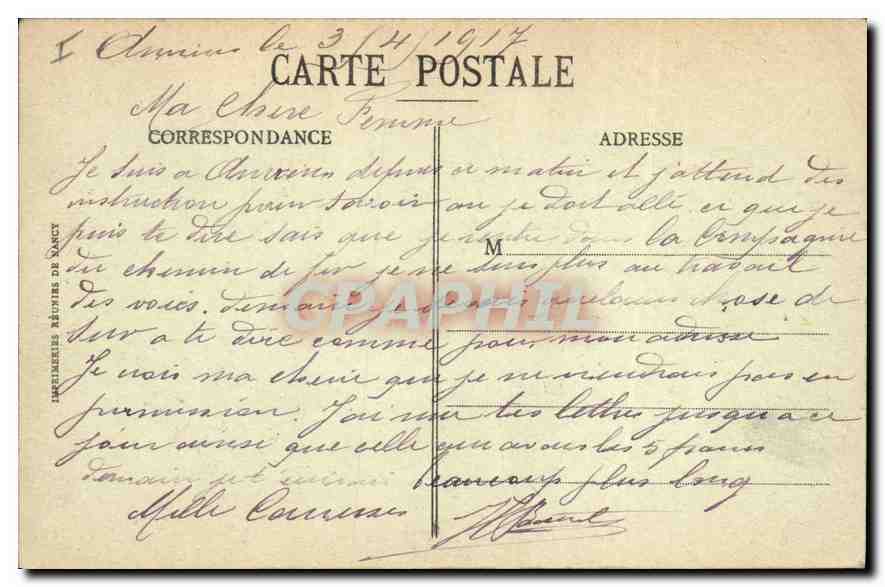 le 3/(4)/1917
CARTE POSTALE
Ma Chere Femme
CORRESPONDANCE
ADRESSE
Je suis a depuis ce matin et j'attend des
instruction pour savoir ou je doit allé ce que je
puis te dire sais que je dans la Compagnie
M
du chemin de fer je ne suis plus au travail
des voies. quelques chose de
sur a te dire comme pour mon adresse
Je vois ma cherie que je ne viendrais pas en
permission. J'ai tes lettres jusqu'a ce
jour ainsi que celle les 5 francs
demain beaucoup plus long
Mille Caresses
IMPRIMERIES RÉUNIES DE NANCY
CPAPHIL